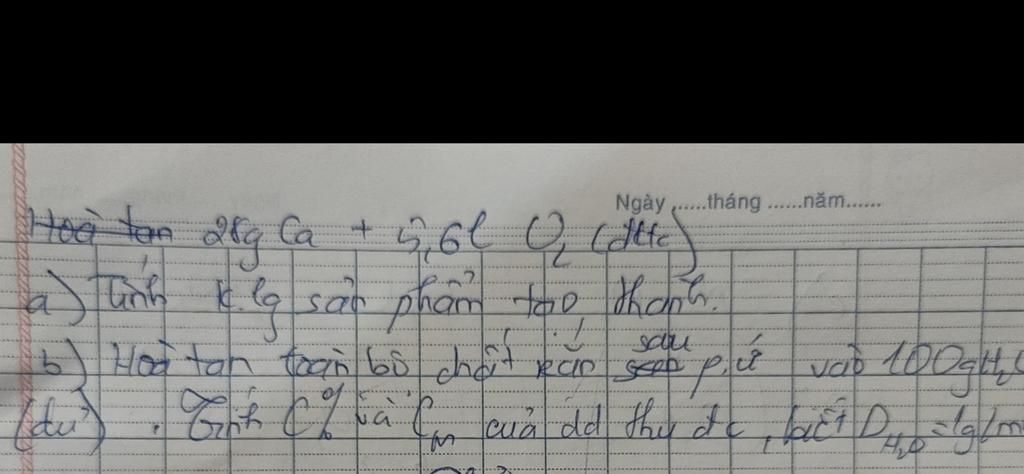 Ngày ......tháng ......năm......
Hoà tan 28g Ca + 5,6l O2 (đktc)
a) Tính k.lg sản phẩm tạo thành.
b) Hoà tan toàn bộ chất rắn sau p.ứ vào 100gH2O
(dư). Tính C% và Cm của dd thu đc, biết DH2O=1g/ml